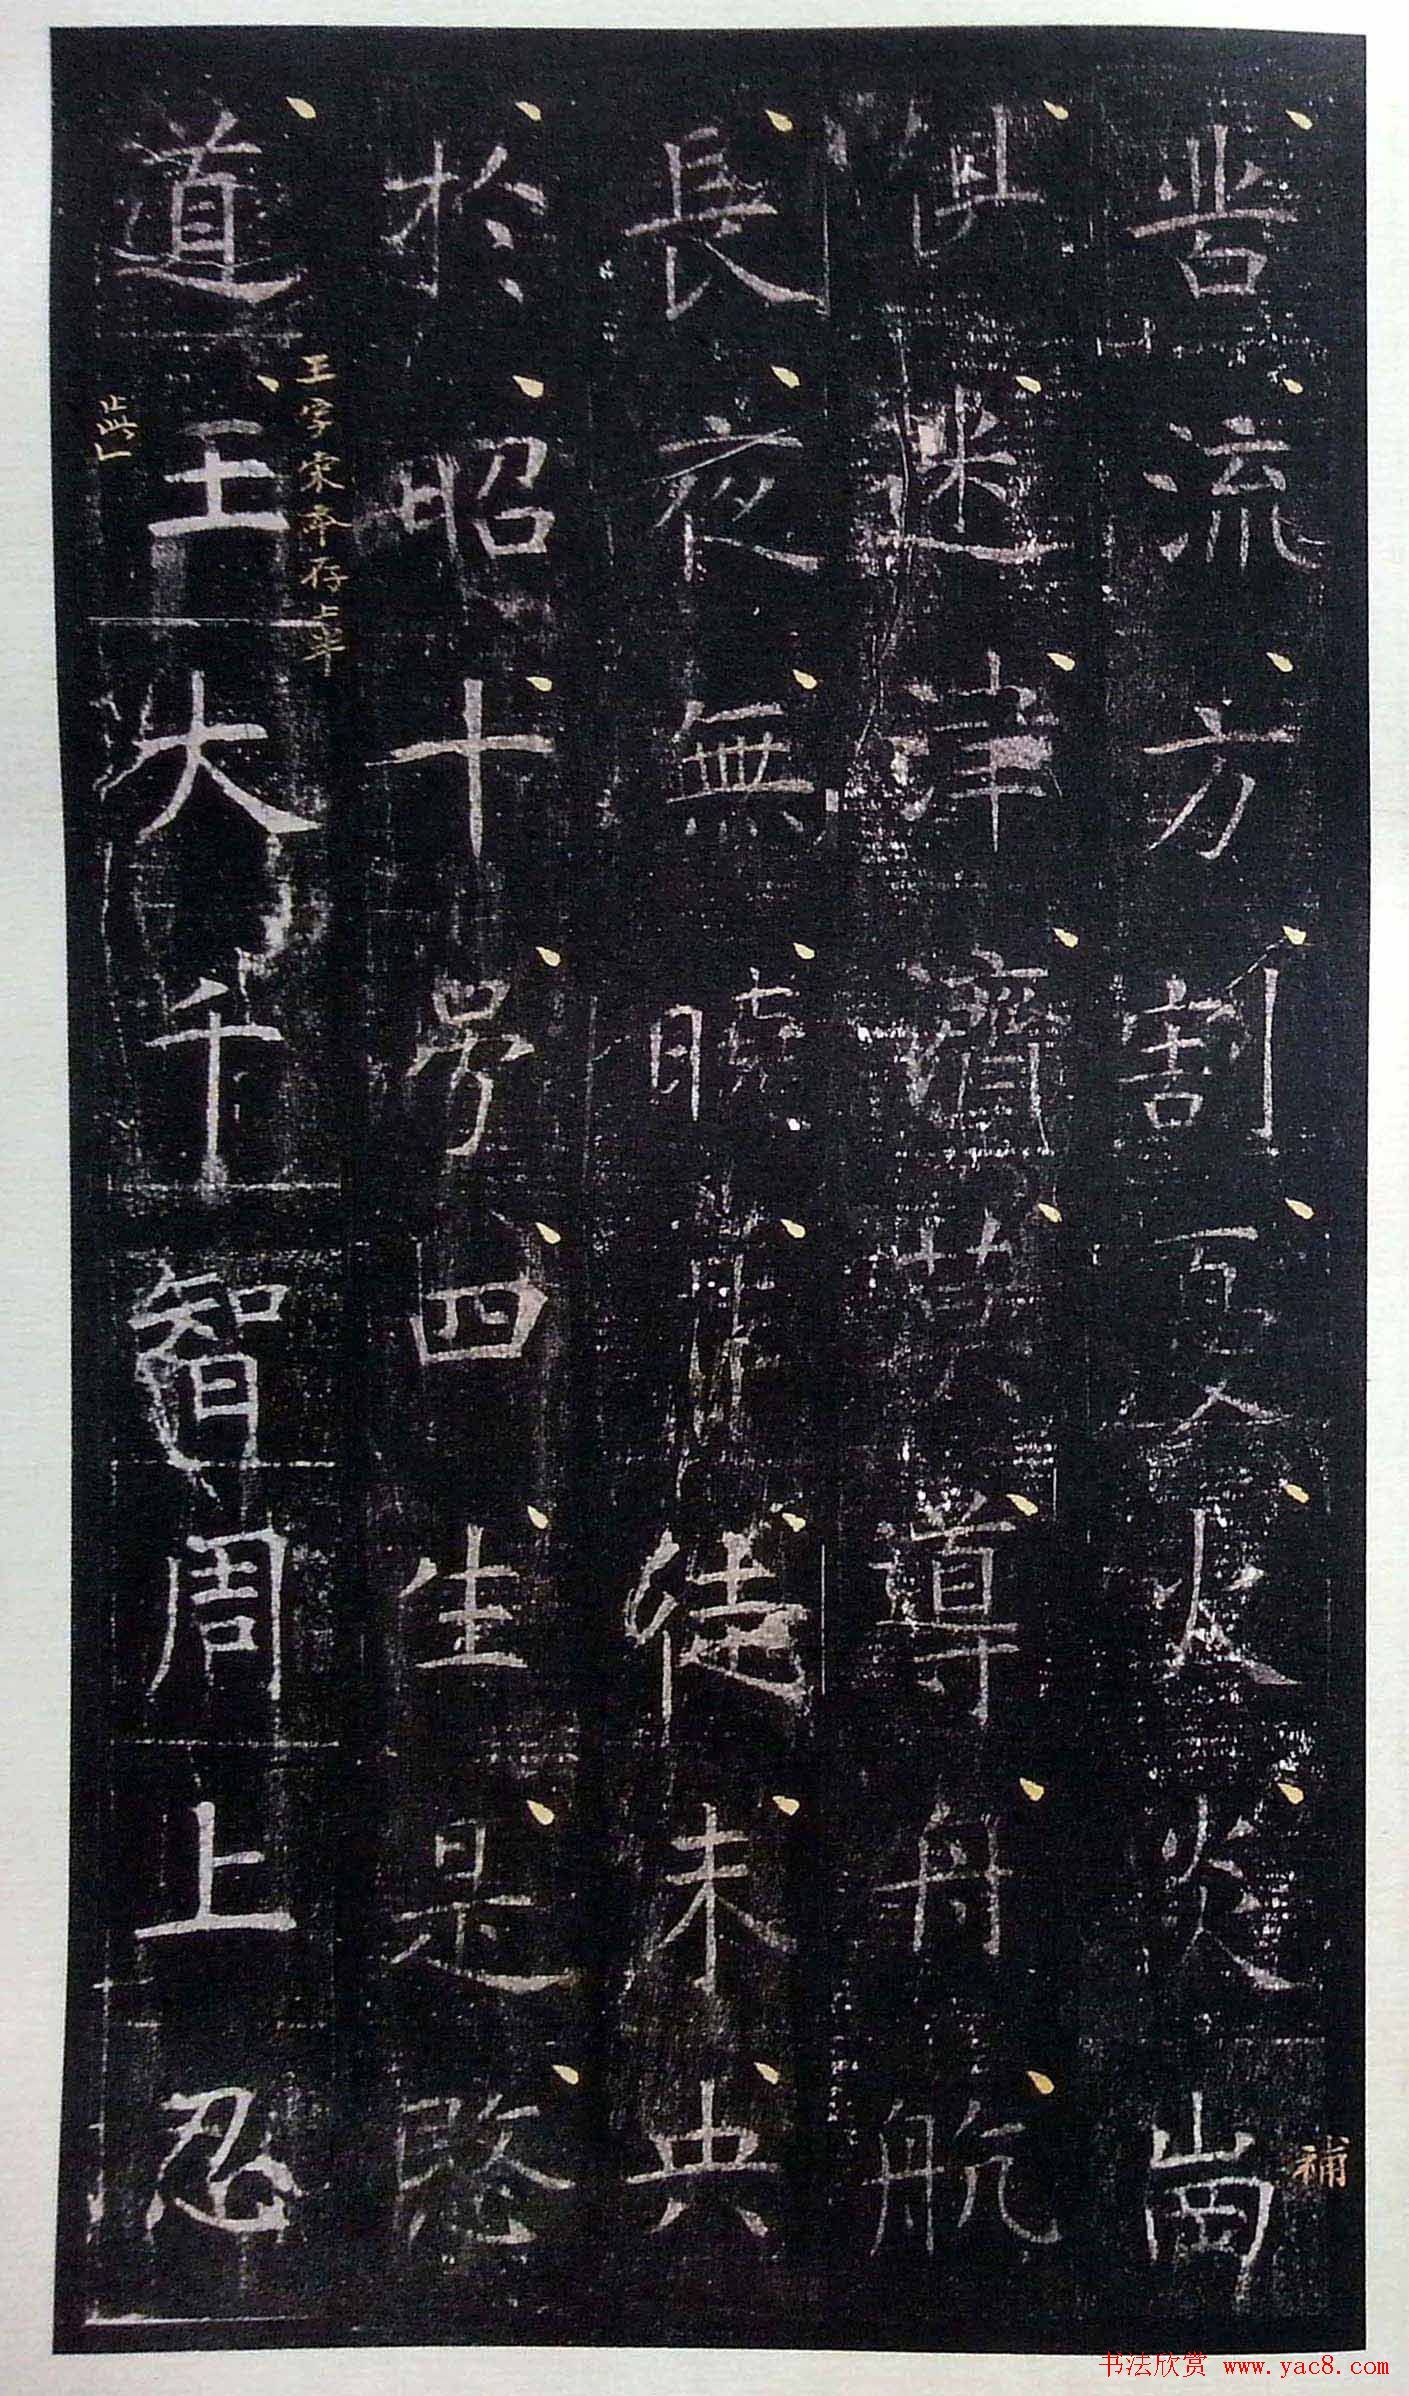 苦流方割火炎崗
補
迷津濟莫導舟航
長夜無曉徒未央
於昭十号四生是
王字宋本存上半
道王大千智周上忍
书法欣赏 www.yac8.com